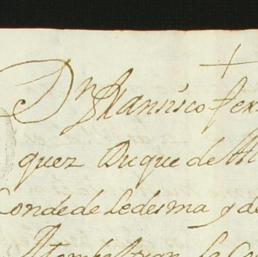 Dn Francisco Fer
quez Duque de Al
Conde de Ledesma y de
la Co